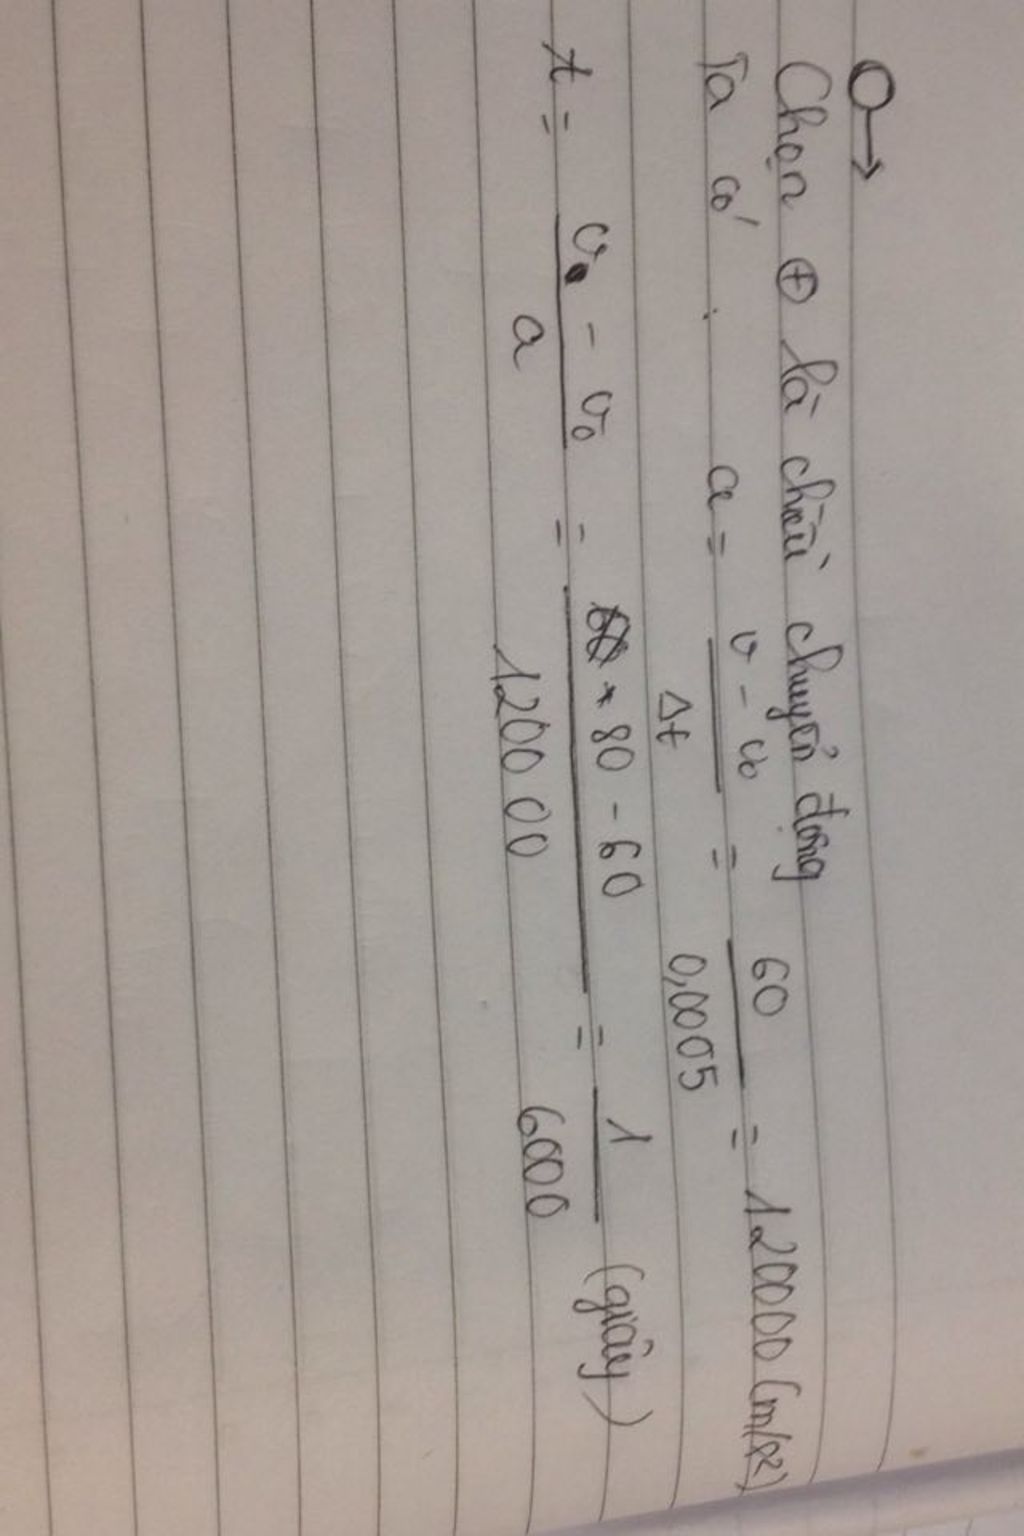 Chọn ⊕ là chiều chuyển động
Ta có: a = v - v₀ / Δt = 60 / 0,0005 = 120000 (m/s²)
t = v - v₀ / a = 80 - 60 / 120000 = 1 / 6000 (giây)